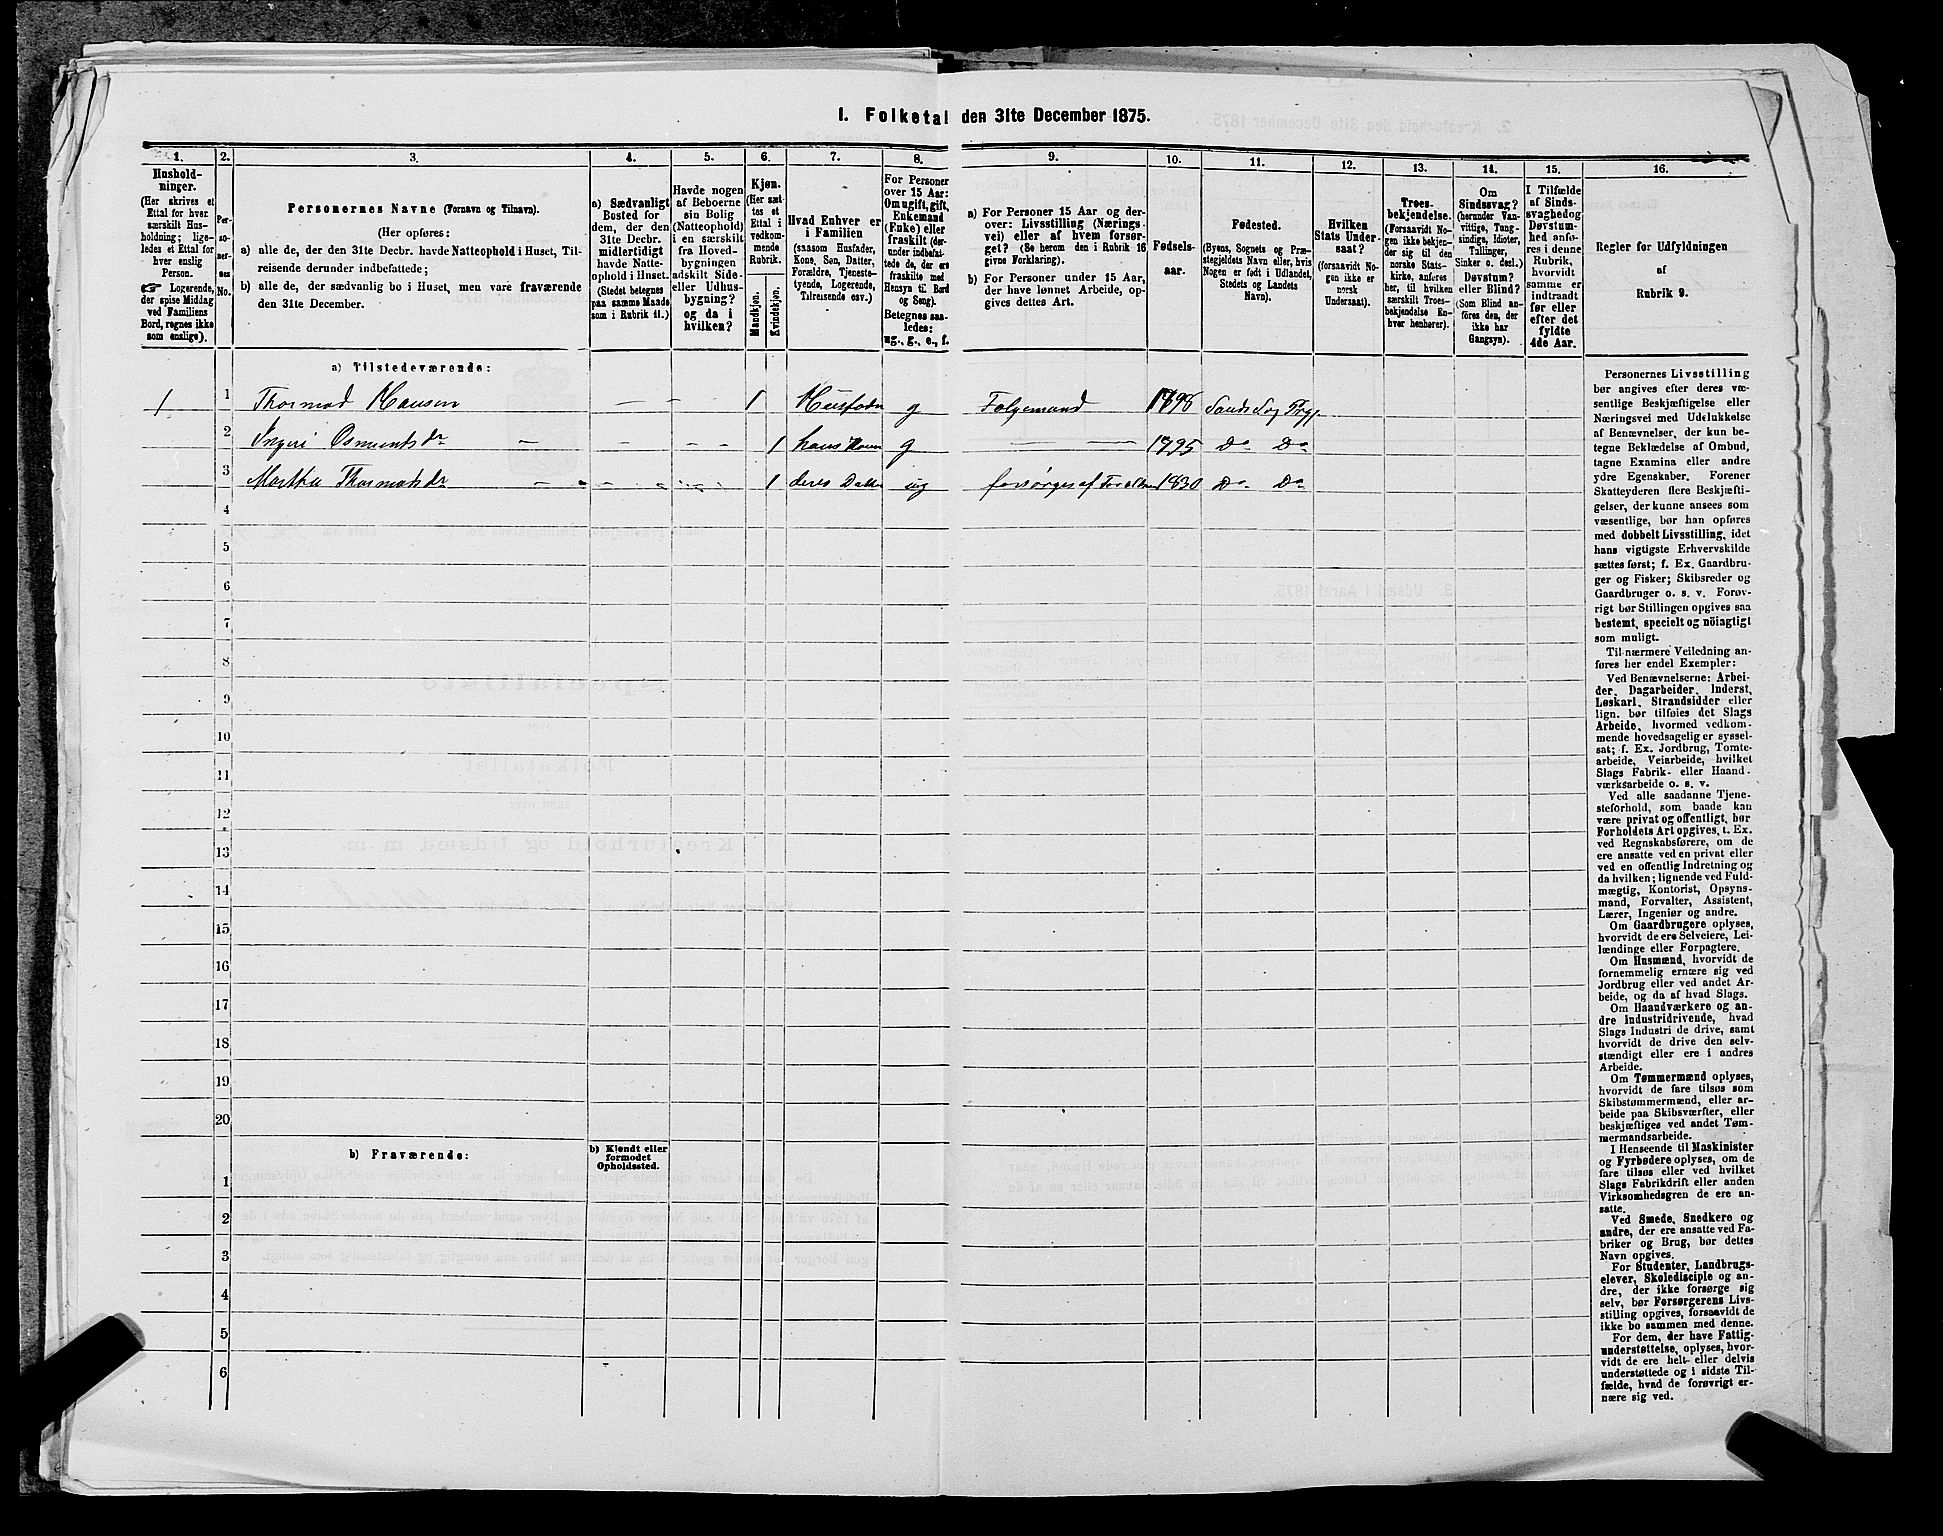 1. Folketal den 31te December 1875.
1. 2. 3. 4. 5. 6. 7. 8. 9. 10. 11. 12. 13. 14. 15. 16.
Hushold-
ninger.
(Her skrives et
Ettal for hver
særskilt Hus-
holdning; lige-
ledes et Ettal for
hver enslig
Person.
☞ Logerende,
der spise Middag
ved Familiens
Bord, regnes ikke
som enslige).
Per-
so-
ner-
nes
No.
Personernes Navne (Fornavn og Tilnavn).
(Her opføres:
a) alle de, der den 31te Decbr. havde Natteophold i Huset, Til-
reisende derunder indbefattede;
b) alle de, der sædvanlig bo i Huset, men vare fraværende
den 31te December.
a) Sædvanligt
Bosted for
dem, der den
31te Decbr.
midlertidigt
havde Natte-
ophold i Huset.
(Stedet betegnes
paa samme Maade
som i Rubrik 11.)
Havde nogen
af Beboerne
sin Bolig
(Natteophold)
i en særskilt
fra Hoved-
bygningen
adskilt Side-
eller Udhus-
bygning?
og da i
hvilken?
Kjøn.
(Her sæt-
tes et
Ettal i
vedkom-
mende
Rubrik.
Mandkjøn.
Kvindekjøn.
Hvad Enhver er
i Familien
(saasom Husfader,
Kone, Søn, Datter,
Forældre, Tjeneste-
tyende, Logerende,
Tilreisende osv.)
For Personer
over 15 Aar:
Om ugift, gift,
Enkemand
(Enke) eller
fraskilt (der-
under indbefat-
tede de, der ere
fraskilte med
Hensyn til Bord
og Seng).
Betegnes saa-
ledes:
ug., g., e., f.
a) For Personer 15 Aar og der-
over: Livsstilling (Nærings-
vei) eller af hvem forsør-
get? (Se herom den i Rubrik 16
givne Forklaring).
b) For Personer under 15 Aar,
der have lønnet Arbeide, op-
gives dettes Art.
Fødsels-
aar.
Fødested.
(Byens, Sognets og Præ-
stegjeldets Navn eller, hvis
Nogen er født i Udlandet,
Stedets og Landets
Navn).
Hvilken
Stats Under-
saat?
(forsaavidt No-
gen ikke er
norsk
Undersaat).
Troes-
bekjendelse.
(Forsaavidt No-
gen ikke bekjen-
der sig til den
norske Stats-
kirke, anføres
her, til hvilken
særskilt Troes-
bekjendelse En-
hver henhører).
Om
Sindssvag?
(herunder Van-
vittige, Tung-
sindige, Idioter,
Tullinger,
Sinker o. desl.)
Døvstum?
eller Blind?
(Som Blind an-
føres den, der
ikke har
Gangsyn).
I Tilfælde
af Sinds-
svaghed og
Døvstum-
hed anfø-
res i denne
Rubrik,
hvorvidt
samme er
indtraadt
før eller
efter det
fyldte
4de Aar.
Regler for Udfyldningen
af
Rubrik 9.
a) Tilstedeværende:
1 1 Thormod Hansen — — 1 Husfader g Følgemand 1798 Sands Sog
2 Ingeri Osmundsdr — — — 1 hans Kone g — 1795 Do Do
3 Martha Thormodsdr — — — 1 deres Datter ug forsørges af Forældrene 1830 Do Do
4
5
6
7
8
9
10
11
12
13
14
15
16
17
18
19
20
b) Fraværende:
b) Kjendt eller
formodet
Opholdssted.
1
2
3
4
5
6
Personernes Livsstilling
bør angives efter deres væ-
sentlige Beskjæftigelse eller
Næringsvei med Udelukkelse
af Benævnelser, der kun be-
tegne Beklædelse af Ombud,
tagne Examina eller andre
ydre Egenskaber. Forener
Skatteyderen flere Beskjæfti-
gelser, der kunne ansees som
væsentlige, bør han opføres
med dobbelt Livsstilling, idet
hans vigtigste Erhvervskilde
sættes først; f. Ex. Gaardbru-
ger og Fisker; Skibsreder og
Gaardbruger o. s. v. Forøv-
rigt bør Stillingen opgives saa
bestemt, specielt og nöiagtigt
som muligt.
Til nærmere Veiledning an-
føres her endel Exempler:
Ved Benævnelserne: Arbei-
der, Dagarbeider, Inderst,
Løskarl, Strandsidder eller
lign. bør tilføies det Slags
Arbeide, hvormed vedkom-
mende hovedsagelig er syssel-
sat; f. Ex. Jordbrug, Tomte-
arbeide, Veiarbeide, hvilket
Slags Fabrik- eller Haand-
værksarbeide o. s. v.
Ved alle saadanne Tjene-
steforhold, som baade kan
være privat og offentligt, bør
Forholdets Art opgives, t. Ex.
ved Regnskabsførere, om de
ere ansatte ved en privat eller
ved en offentlig Indretning og
da hvilken; lignende ved Fuld-
mægtig, Kontorist, Opsyns-
mand, Forvalter, Assistent,
Lærer, Ingeniør og andre.
Om Gaardbrugere oplyses,
hvorvidt de ere Selveiere, Lei-
lændinge eller Forpagtere.
Om Husmænd, hvorvidt de
fornemmelig ernære sig ved
Jordbrug eller ved andet Ar-
beide, og da af hvad Slags.
Om Haandværkere og an-
dre Industridrivende, hvad
Slags Industri de drive, samt
hvorvidt de drive den selv-
stændigt eller ere i andres
Arbeide.
Om Tømmermænd oplyses,
hvorvidt de fare tilsøs som
Skibstømmermænd, eller ar-
beide paa Skibsværfter, eller
beskjæftiges ved andet Tøm-
mermandsarbeide.
I Henseende til Maskinister
og Fyrbødere oplyses, om de
fare tilsøs eller ved hvilket
Slags Fabrikdrift eller anden
Virksomhedsgren de ere an-
satte.
Ved Smede, Snedkere og
andre, der ere ansatte ved Fa-
briker og Brug, bør dettes
Navn opgives.
For Studenter, Landbrugs-
elever, Skoledisciple og an-
dre, der ikke forsørge sig
selv, bør Forsørgerens Livs-
stilling opgives, forsaavidt de
ikke bo sammen med denne.
For dem, der have Fattig-
understøttelse, oplyses, hvor-
vidt de ere helt- eller delvis
understøttede og i sidste Til-
fælde, hvad de forøvrigt er-
nære sig ved.